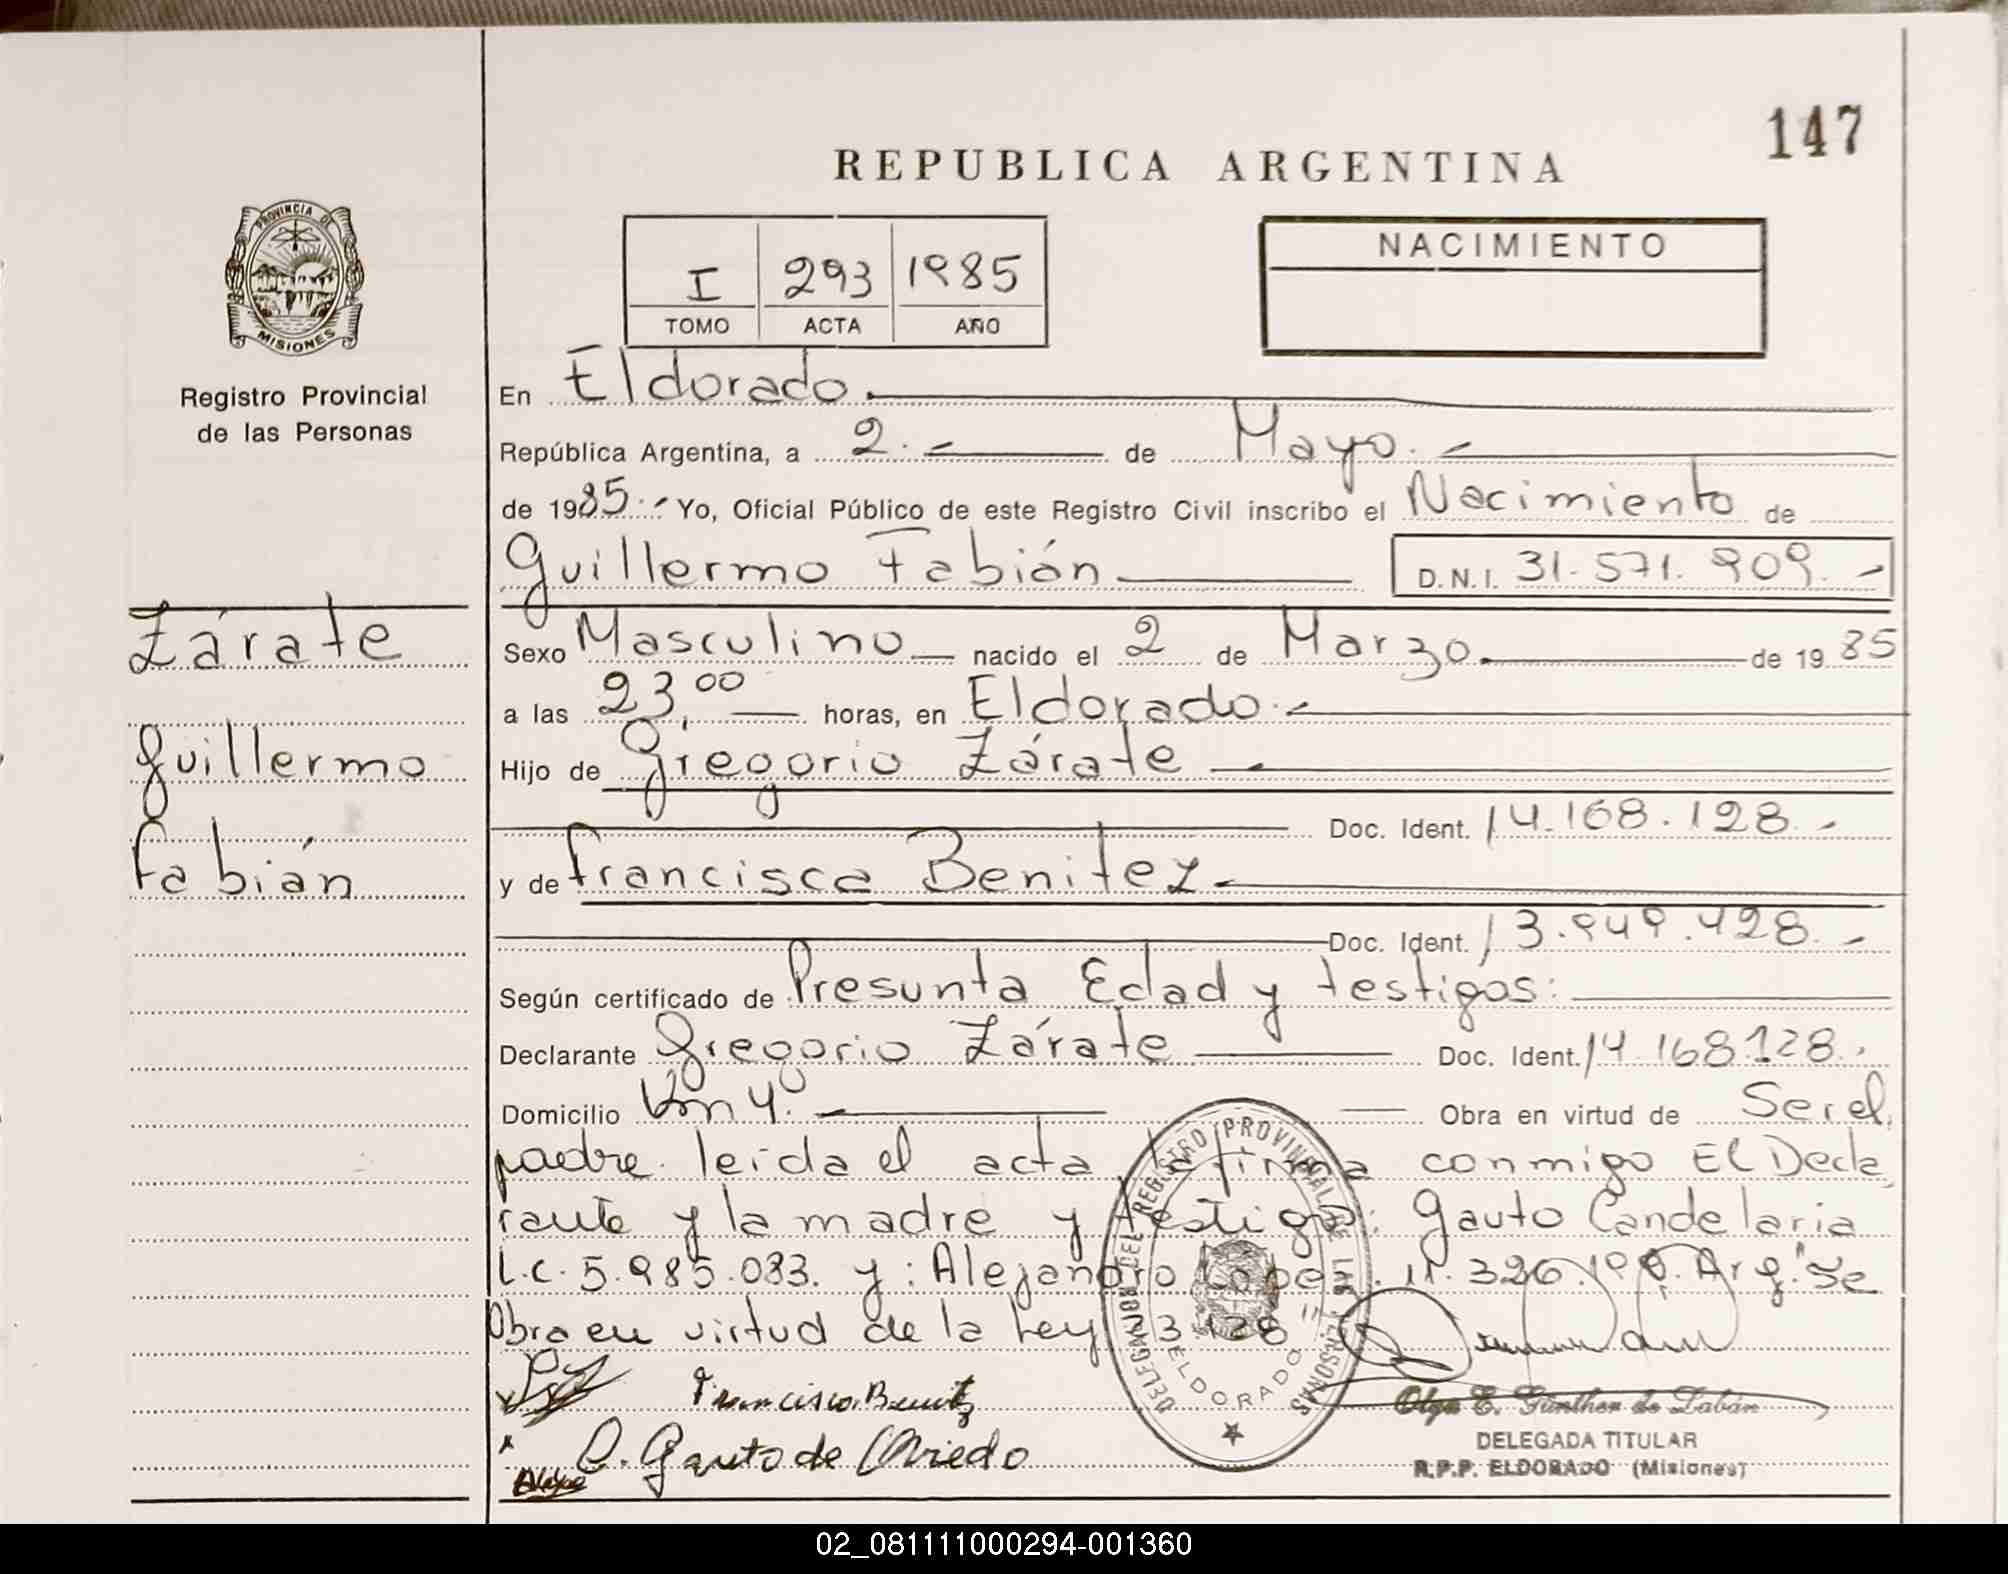 147
REPUBLICA ARGENTINA
PROVINCIA DE
MISIONES
Registro Provincial
de las Personas
I 293 1985
TOMO ACTA AÑO
NACIMIENTO
En Eldorado.
República Argentina, a 2.- de Mayo.-
de 1985.- Yo, Oficial Público de este Registro Civil inscribo el Nacimiento de
Guillermo Fabián D.N.I. 31.571.909.-
Zárate
Guillermo
Fabián
Sexo Masculino nacido el 2 de Marzo. de 1985
a las 23,00 horas, en Eldorado.-
Hijo de Gregorio Zárate
Doc. Ident. 14.168.128.-
y de Francisca Benitez.
Doc. Ident. 13.949.428.-
Según certificado de Presunta Edad y testigos:
Declarante Gregorio Zárate Doc. Ident. 14.168.128.
Domicilio Km 4. Obra en virtud de Ser el
padre. leida el acta la firma conmigo El Decla
rante y la madre y testigos: Gauto Candelaria
L.C. 5.985.033. y: Alejandro 11.326. Arg. Se
Obra en virtud de la Ley 3.128=
DELEGACION DEL REGISTRO PROVINCIAL DE LAS PERSONAS
ELDORADO
Francisca Benitz
C. Gauto de Oviedo
Olga E. Günther de Labán
DELEGADA TITULAR
R.P.P. ELDORADO (Misiones)
02_081111000294-001360